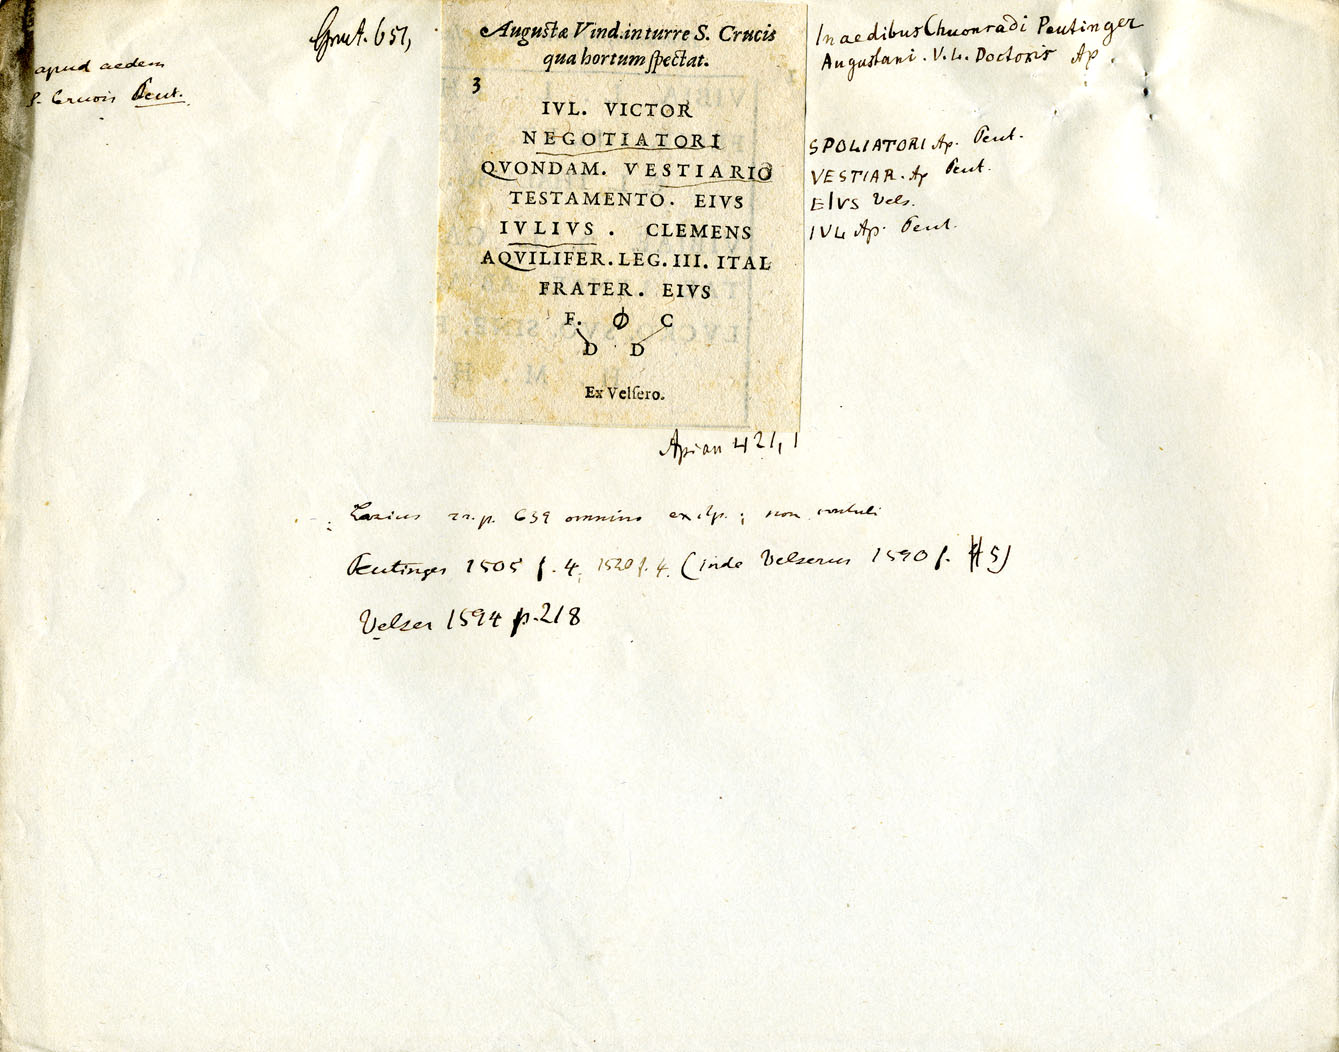 Grut. 651,
apud aedem
S. Crucis Peut.
Augustæ Vind. in turre S. Crucis
qua hortum spectat.
3
IVL. VICTOR
NEGOTIATORI
QVONDAM. VESTIARIO
TESTAMENTO. EIVS
IVLIVS. CLEMENS
AQVILIFER. LEG. III. ITAL
FRATER. EIVS
F. Ø C
D D
Ex Velsero.
In aedibus Chuonradi Peutinger
Augustani. V. L. Doctoris Ap.
SPOLIATORI Ap. Peut.
VESTIAR. Ap Peut.
EIVS Vels.
IVL Ap. Peut.
Apian 421, 1
Lazius r. r. p. 639 omnino ; non contuli
Peutinger 1505 f. 4, 1520 f. 4. (inde Velserus 1590 f. 5)
Velser 1594 p. 218